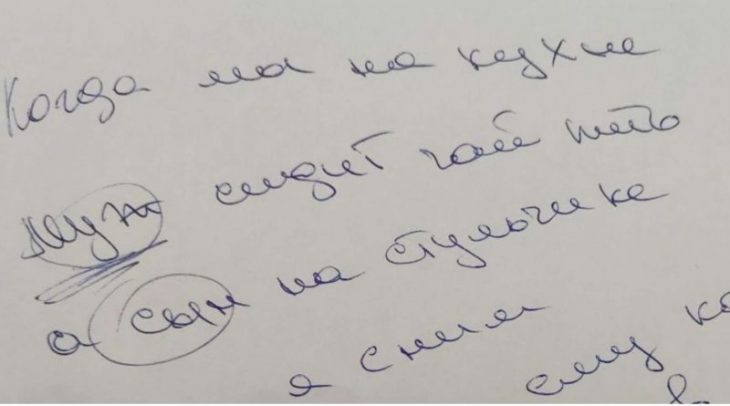 Когда мы на кухне
муж сидит чай пить
а сын на стульчике
я сними ему